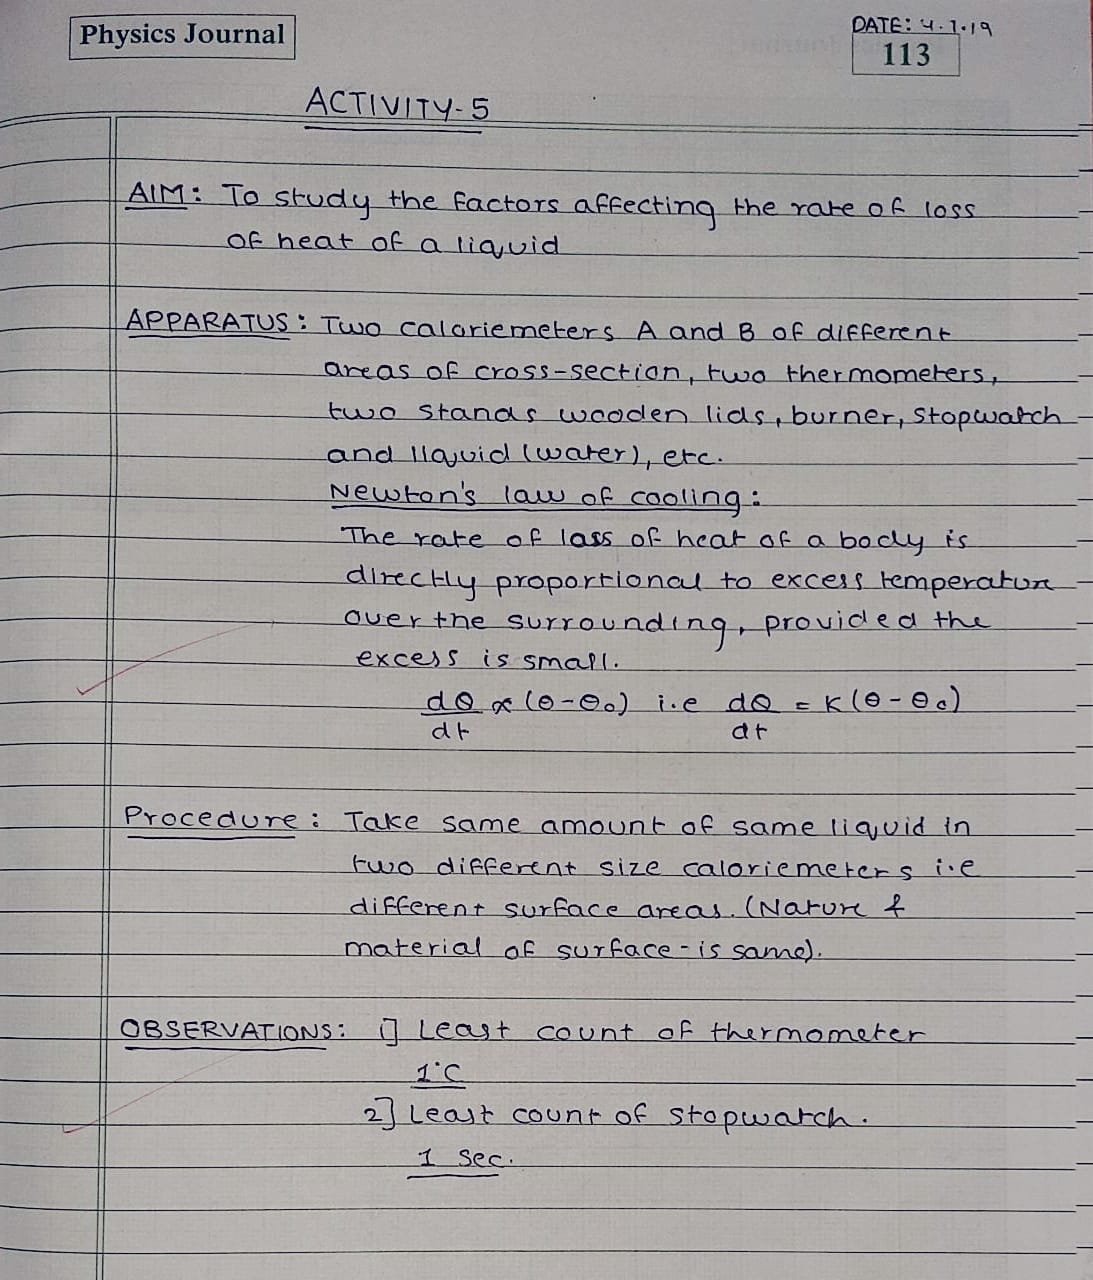 Physics Journal
DATE: 4.7.19
113
ACTIVITY-5
AIM: To study the factors affecting the rate of loss
of heat of a liquid
APPARATUS: Two caloriemeters A and B of different
areas of cross-section, two thermometers,
two stands wooden lids, burner, stopwatch
and liquid (water), etc.
Newton's law of cooling:
The rate of loss of heat of a body is
directly proportional to excess temperature
over the surrounding, provided the
excess is small.
dQ/dt ∝ (θ-θ₀) i.e dQ/dt = K(θ-θ₀)
Procedure: Take same amount of same liquid in
two different size caloriemeters i.e
different surface areas. (Nature &
material of surface-is same).
OBSERVATIONS: 1] Least count of thermometer
1°C
2] Least count of stopwatch.
1 sec.